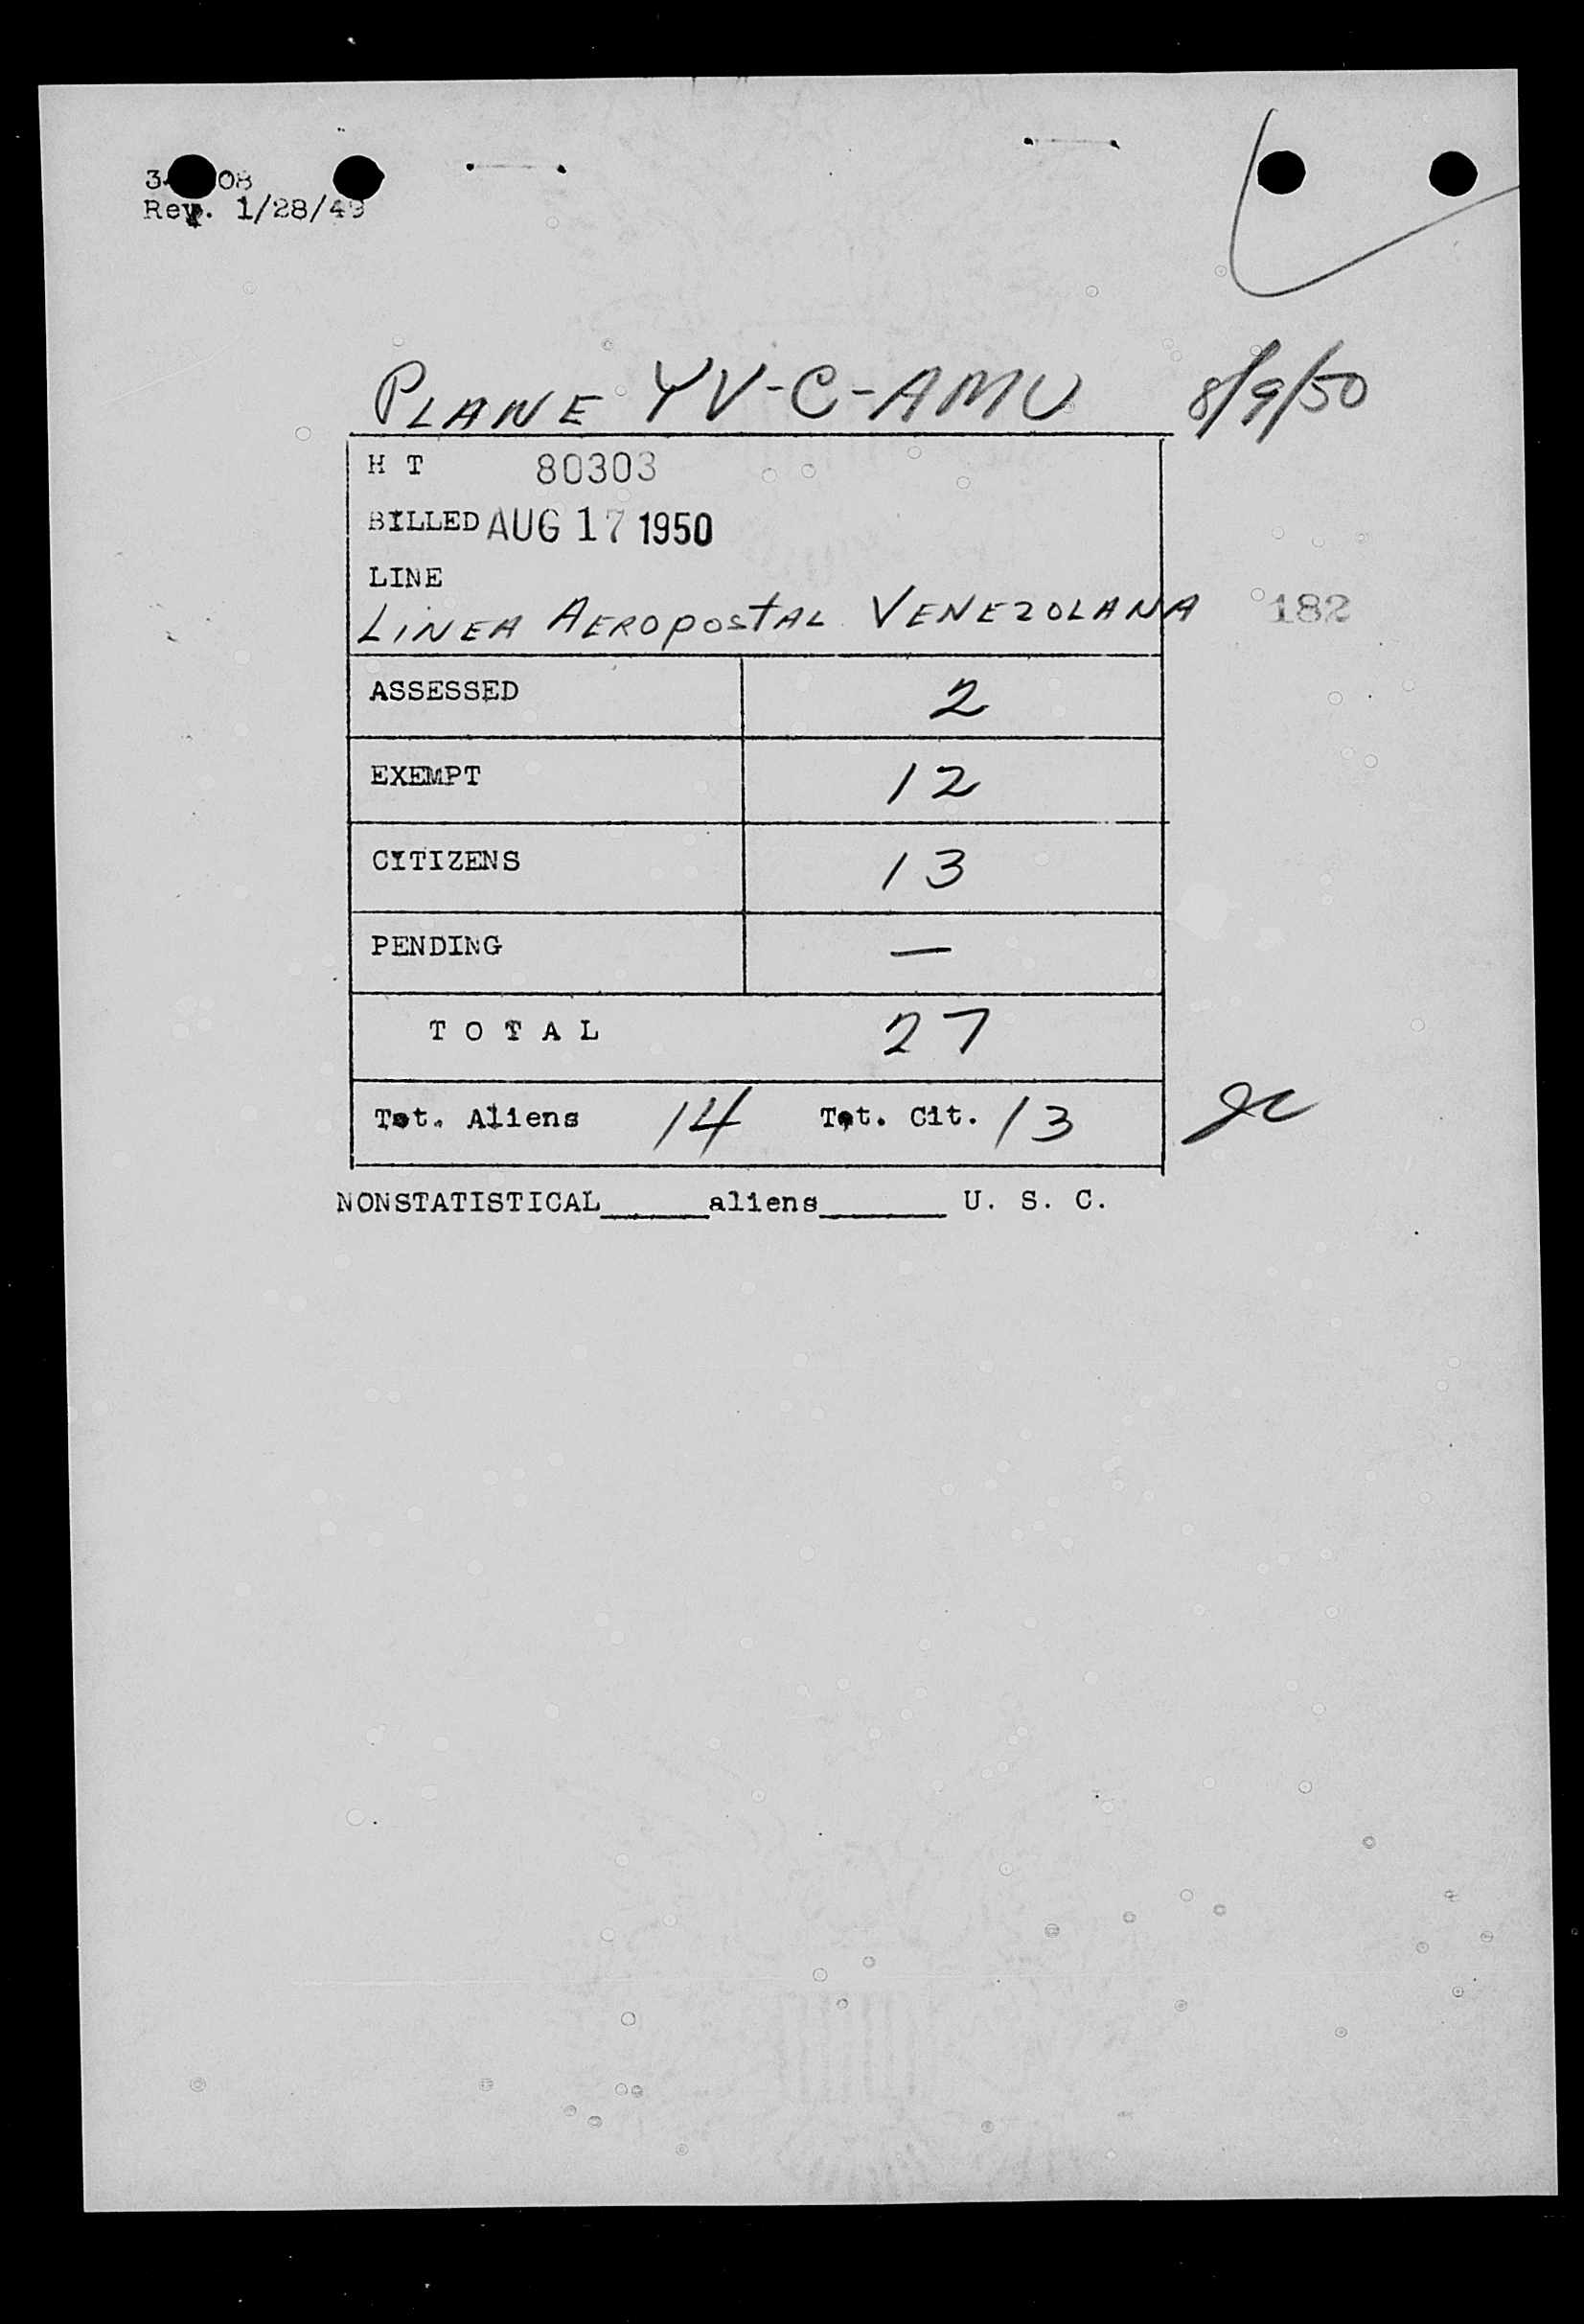 Rev. 1/28/49
PLANE YV-C-AMU 8/9/50
H T 80303
BILLED AUG 17 1950
LINE
LINEA AEROPOSTAL VENEZOLANA 182
ASSESSED 2
EXEMPT 12
CITIZENS 13
PENDING —
T O T A L 27
Tot. Aliens 14 Tot. Cit. 13
NONSTATISTICAL______aliens_______ U. S. C.